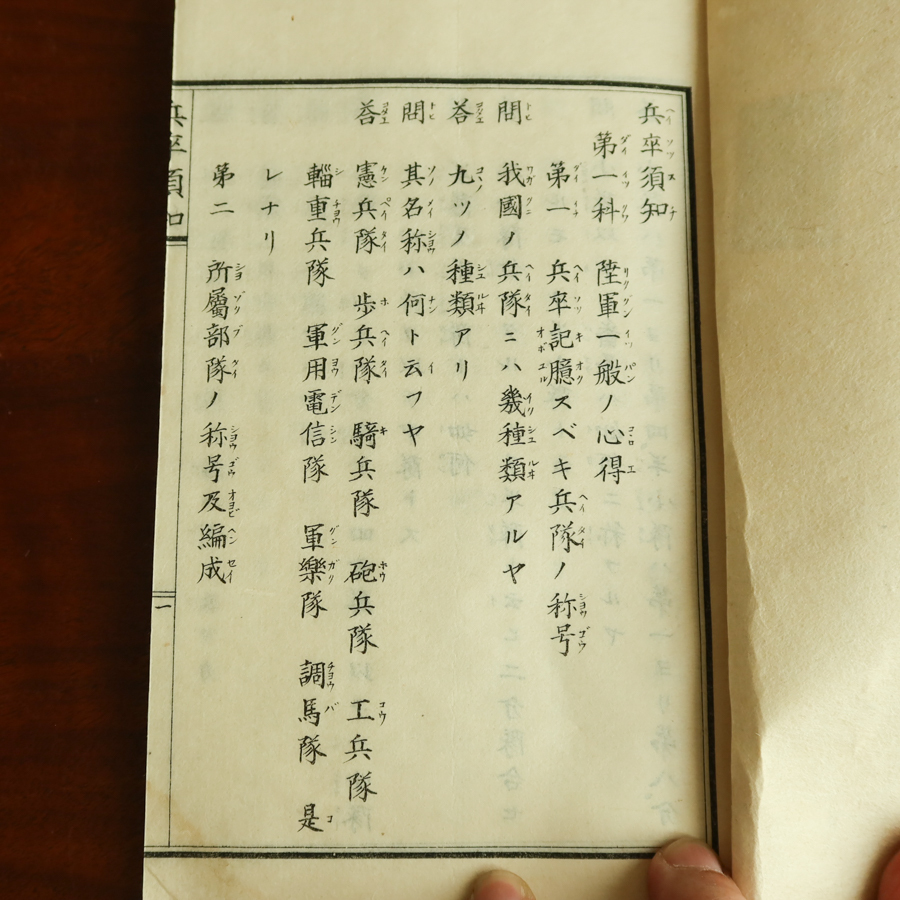 兵卒須知
第一科 陸軍一般ノ心得
第一 兵卒記臆スベキ兵隊ノ称号
問 我國ノ兵隊ニハ幾種類アルヤ
荅 九ツノ種類アリ
問 其名称ハ何ト云フヤ
荅 憲兵隊 歩兵隊 騎兵隊 砲兵隊 工兵隊
輜重兵隊 軍用電信隊 軍樂隊 調馬隊 是
レナリ
第二 所屬部隊ノ称号及編成
兵卒須知
一